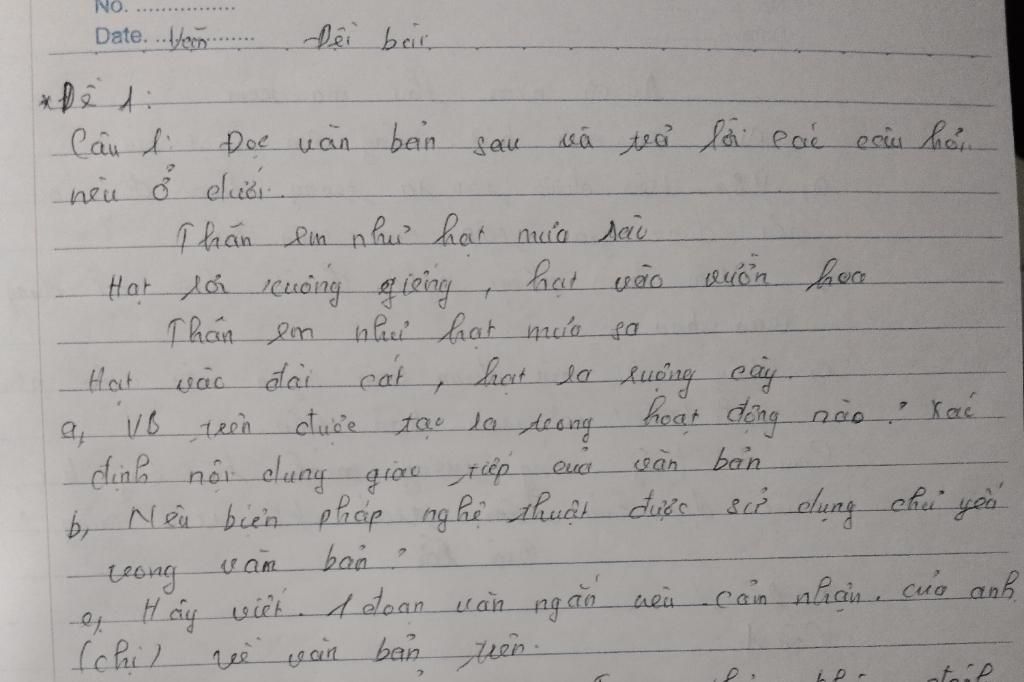 No. ................
Date. ...Văn........... Đề bài
* Đề 1:
Câu 1: Đọc văn bản sau và trả lời các câu hỏi
nêu ở dưới.
Thân em như hạt mưa sào
Hạt rơi xuống giếng, hạt vào vườn hoa
Thân em như hạt mưa sa
Hạt vào đài cát, hạt ra ruộng cày
a, VB trên được tạo ra trong hoạt động nào? Xác
định nội dung giao tiếp của văn bản
b, Nêu biện pháp nghệ thuật được sử dụng chủ yếu
trong văn bản?
c, Hãy viết 1 đoạn văn ngắn nêu cảm nhận của anh
(chị) về văn bản trên.